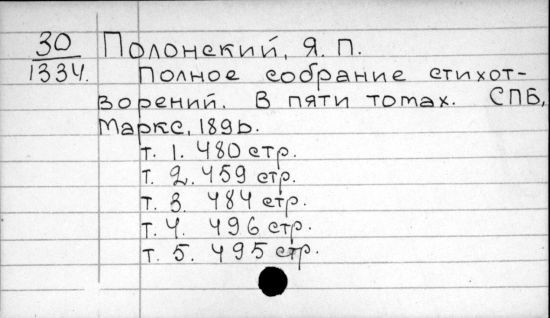 30 Полонский, Я. П.
1334. Полное собрание стихот-
ворений. В пяти томах. СПБ,
Маркс, 1896.
т. 1. 480 стр.
т. 2. 459 стр.
т. 3. 484 стр.
т. 4. 496 стр.
т. 5. 495 стр.